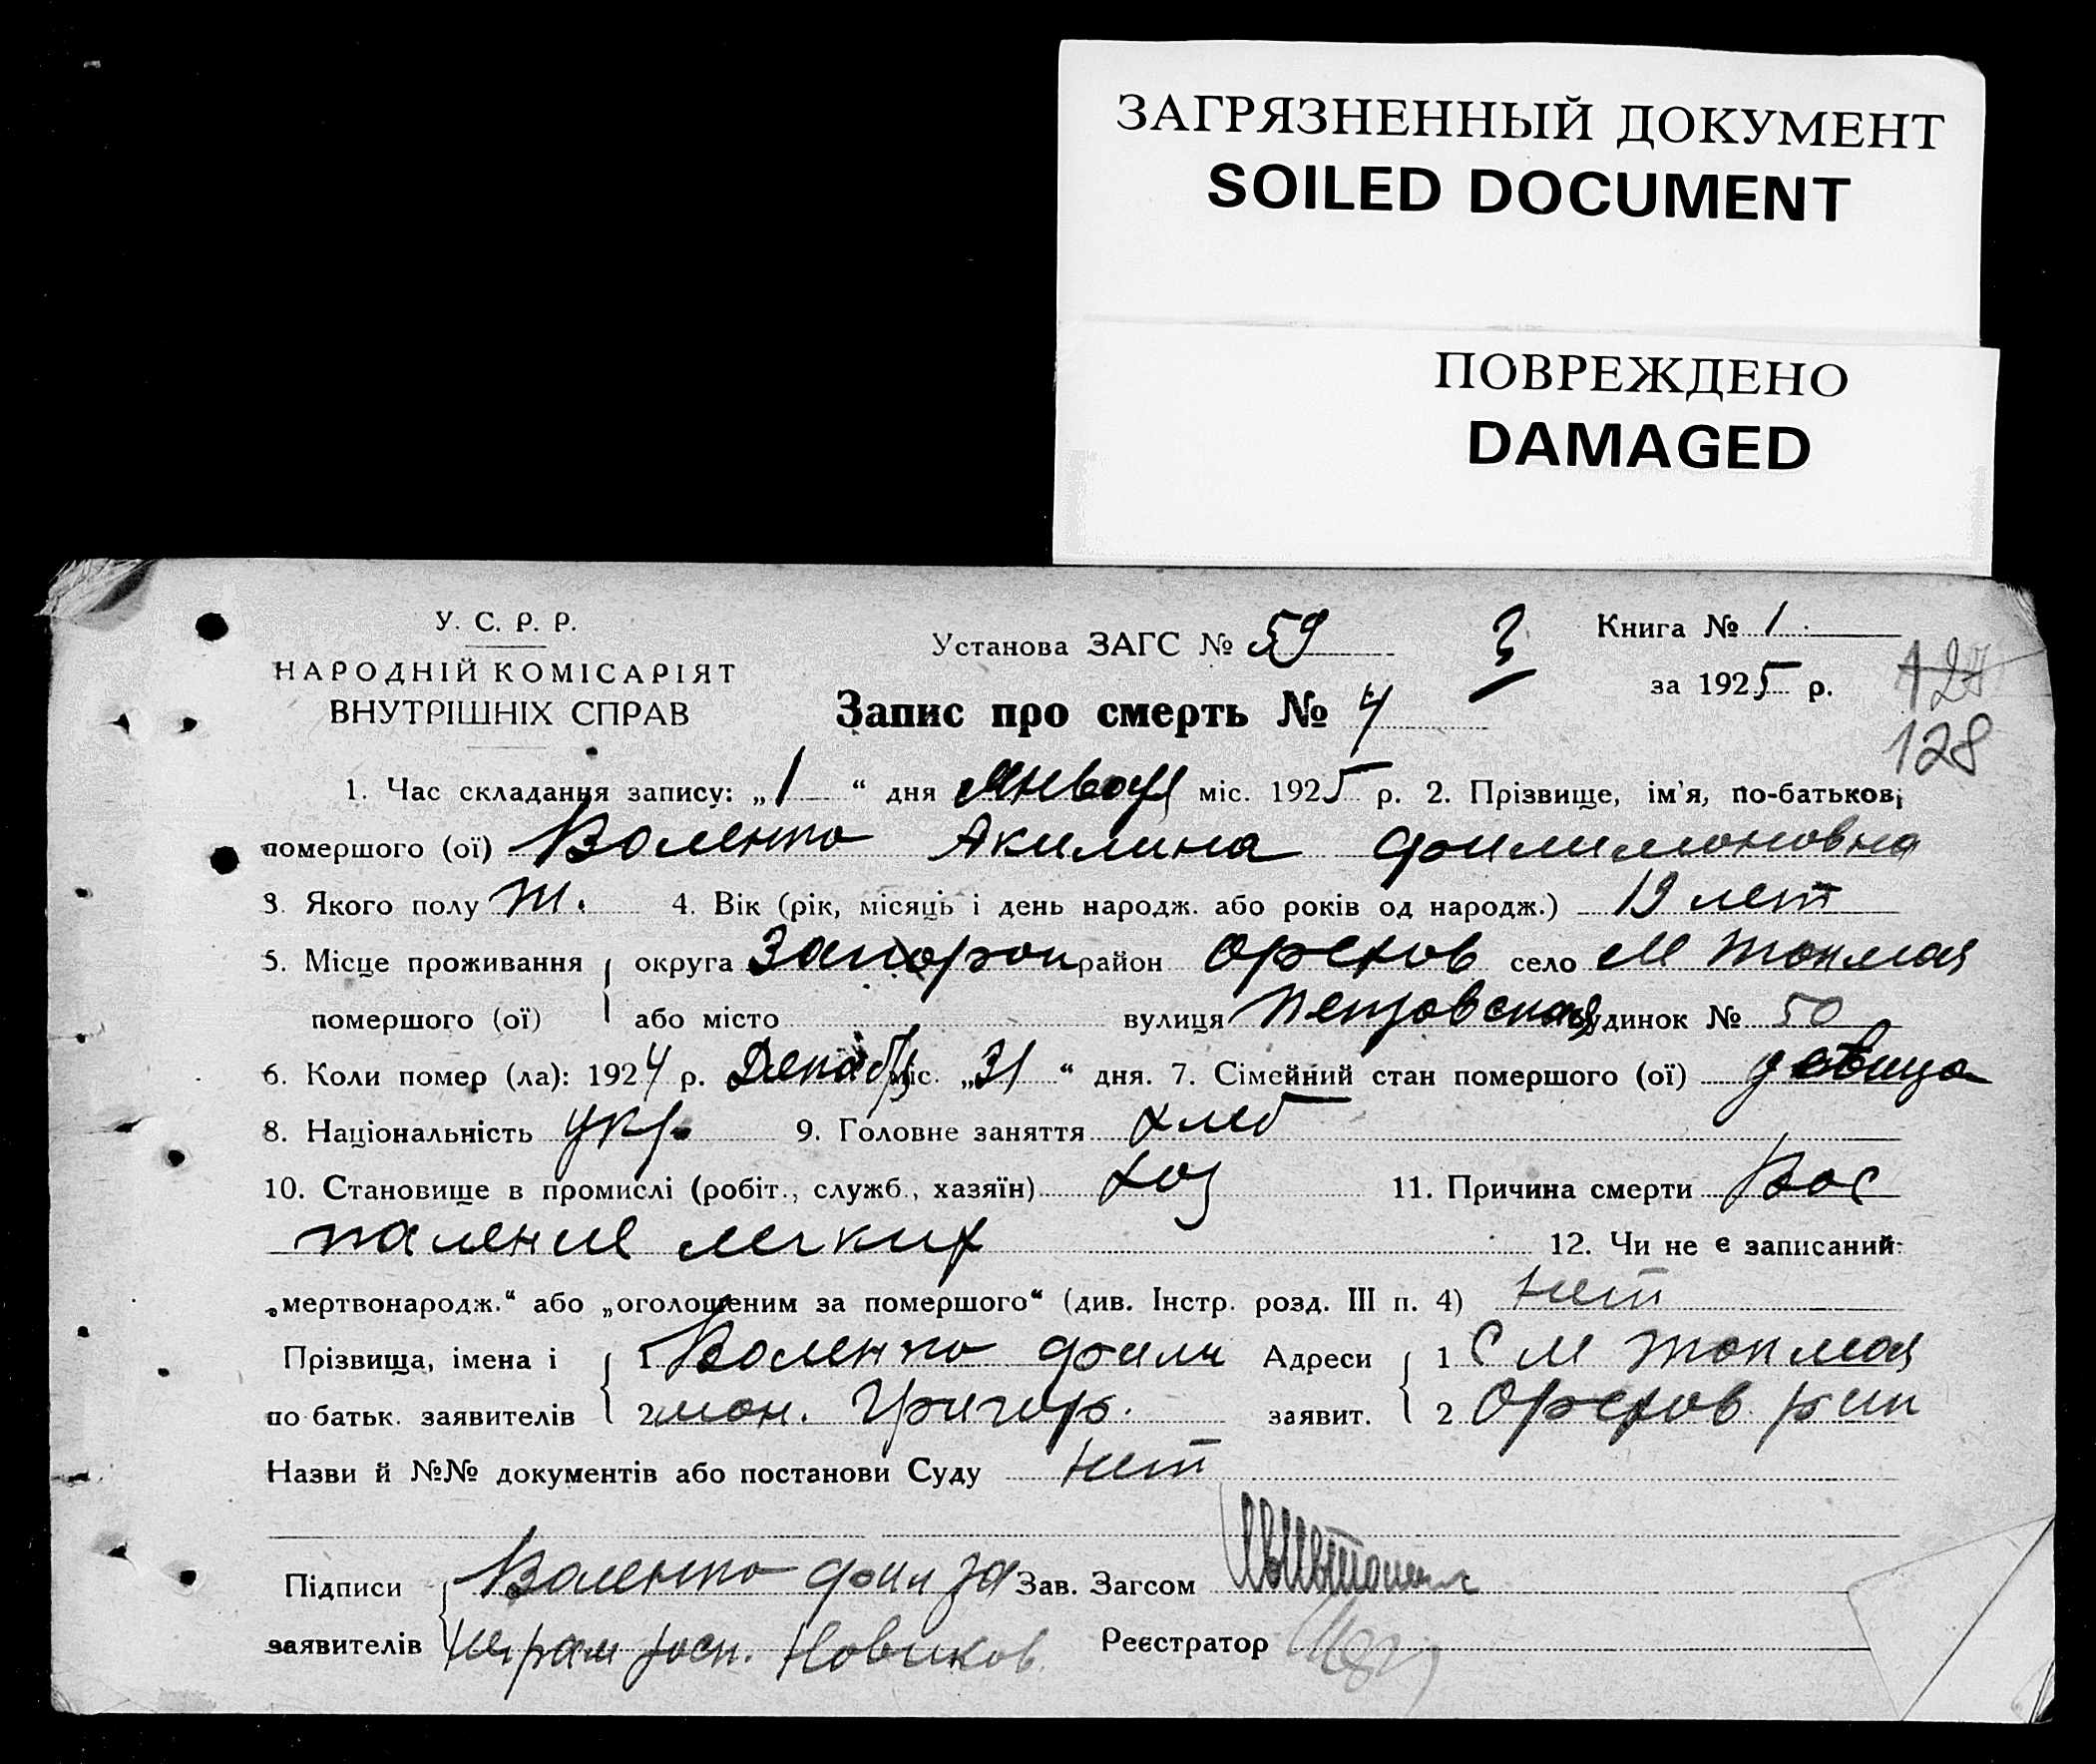 ЗАГРЯЗНЕННЫЙ ДОКУМЕНТ
SOILED DOCUMENT
ПОВРЕЖДЕНО
DAMAGED
У. С. Р. Р.
НАРОДНІЙ КОМІСАРІЯТ
ВНУТРІШНІХ СПРАВ
Установа ЗАГС № 59
3
Книга № 1
за 1925 р.
127
128
Запис про смерть № 4
1. Час складання запису: „1“ дня Января міс. 1925 р. 2. Прізвище, ім'я, по-батькові
помершого (ої) Воленко Акилина Филимоновна
3. Якого полу Ж. 4. Вік (рік, місяць і день народж. або років од народж.) 19 лет
5. Місце проживання округа Запорож район Орехов село М Токмая
помершого (ої) або місто вулиця Петровская будинок № 50
6. Коли помер (ла): 1924 р. Декабр міс. „31“ дня. 7. Сімейний стан помершого (ої) девица
8. Національність укр. 9. Головне заняття хлеб
10. Становище в промислі (робіт., служб., хазяїн) хоз 11. Причина смерти Вос
паление легких 12. Чи не є записаний
„мертвонародж.“ або „оголошеним за помершого“ (див. Інстр. розд. III п. 4) нет
Прізвища, імена і 1 Воленко Фили Адреси 1 С М Токмая
по батьк. заявителів 2 мон. Григор. заявит. 2 Орехов
Назви й №№ документів або постанови Суду нет
Підписи Воленко Фил за Зав. Загсом
заявителів Новиков Реєстратор